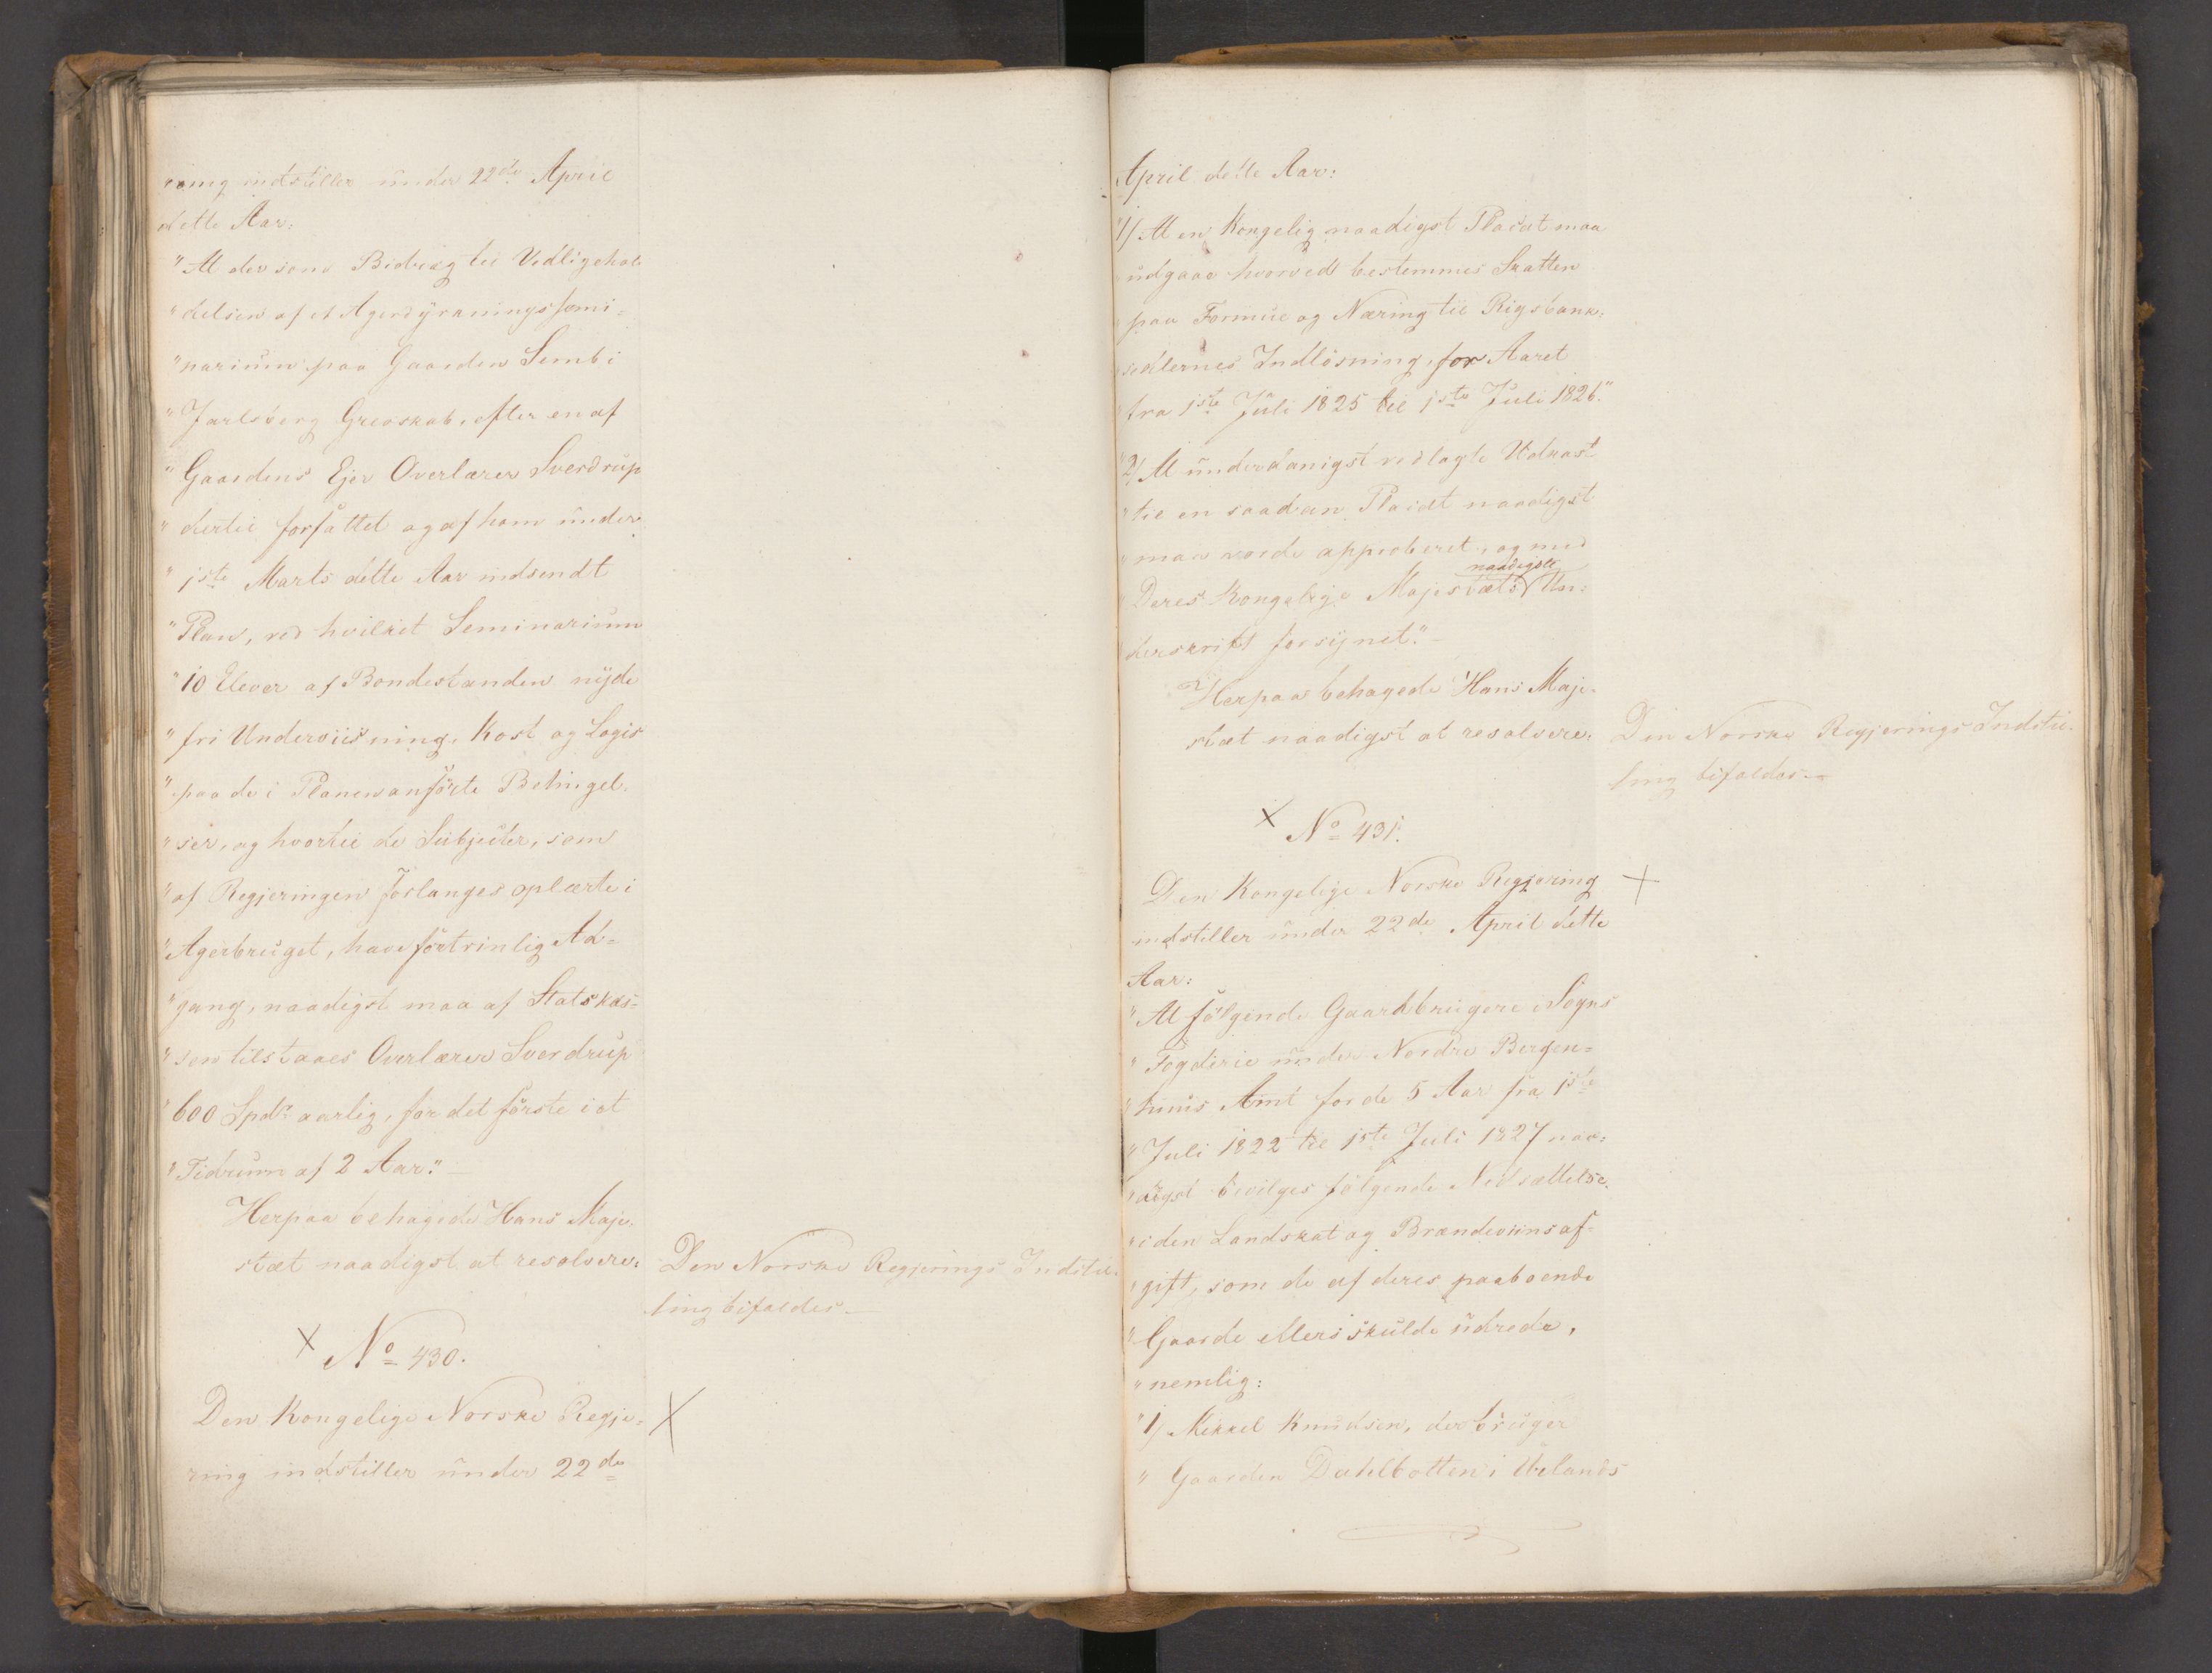 ring indstiller under 22de April
dette Aar:
"At der som Bidrag til Vedligehol-
"delsen af et Agerdyrkningssemi-
"narium paa Gaarden Semb i
"Jarlsberg Grevskab, efter en af
"Gaardens Ejer Overlærer Sverdrup
"dertil forfattet og af ham under
"1ste Marts dette Aar indsendt
"Plan, ved hvilket Seminarium
"10 Elever af Bondestanden nyde
"fri Underviisning, Kost og Logis
"paa de i Planen anførte Betingel-
"ser, og hvortil de Subjecter, som
"af Regjeringen forlanges oplærte i
"Agerbruget, have fortrinlig Ad-
"gang, naadigst maa af Statskas-
"sen tilstaaes Overlærer Sverdrup
"600 Spdr aarlig, for det første i et
"Tidrum af 2 Aar."
Herpaa behagede Hans Maje-
stæt naadigst at resolvere:
Den Norske Regjerings Indstil-
ling bifaldes.
× No 430.
Den Kongelige Norske Regje-
ring indstiller under 22de
April dette Aar:
"1/ At en Kongelig naadigst Placat maa
udgaae hvorved bestemmes Skatten
paa Formue og Næring til Rigsbank-
sedlernes Indløsning, for Aaret
fra 1ste Juli 1825 til 1ste Juli 1826."
"2/ At underdanigst vedlagte Udkast
"til en saadan Placat naadigst
"maa vorde approberet, og med
naadigste
"Deres Kongelige Majestæts Un-
derskrift forsynet."
Herpaa behagede Hans Maje-
stæt naadigst at resolvere:
Den Norske Regjerings Indstil-
ling bifaldes.
× No 431.
Den Kongelige Norske Regjering
indstiller under 22de April dette
Aar:
"At følgende Gaardbrugere i Sogns
"Fogderie under Nordre Bergen-
"huus Amt for de 5 Aar fra 1ste
"Juli 1822 til 1ste Juli 1827 naa-
"digst bevilges følgende Nedsættelse
"i den Landskat og Brændeviinsaf-
"gift, som de af deres paaboende
"Gaarde ellers skulde udrede,
"nemlig:
"1/ Mikkel Knudsen, der bruger
"Gaarden Dahlbotten i Urlands